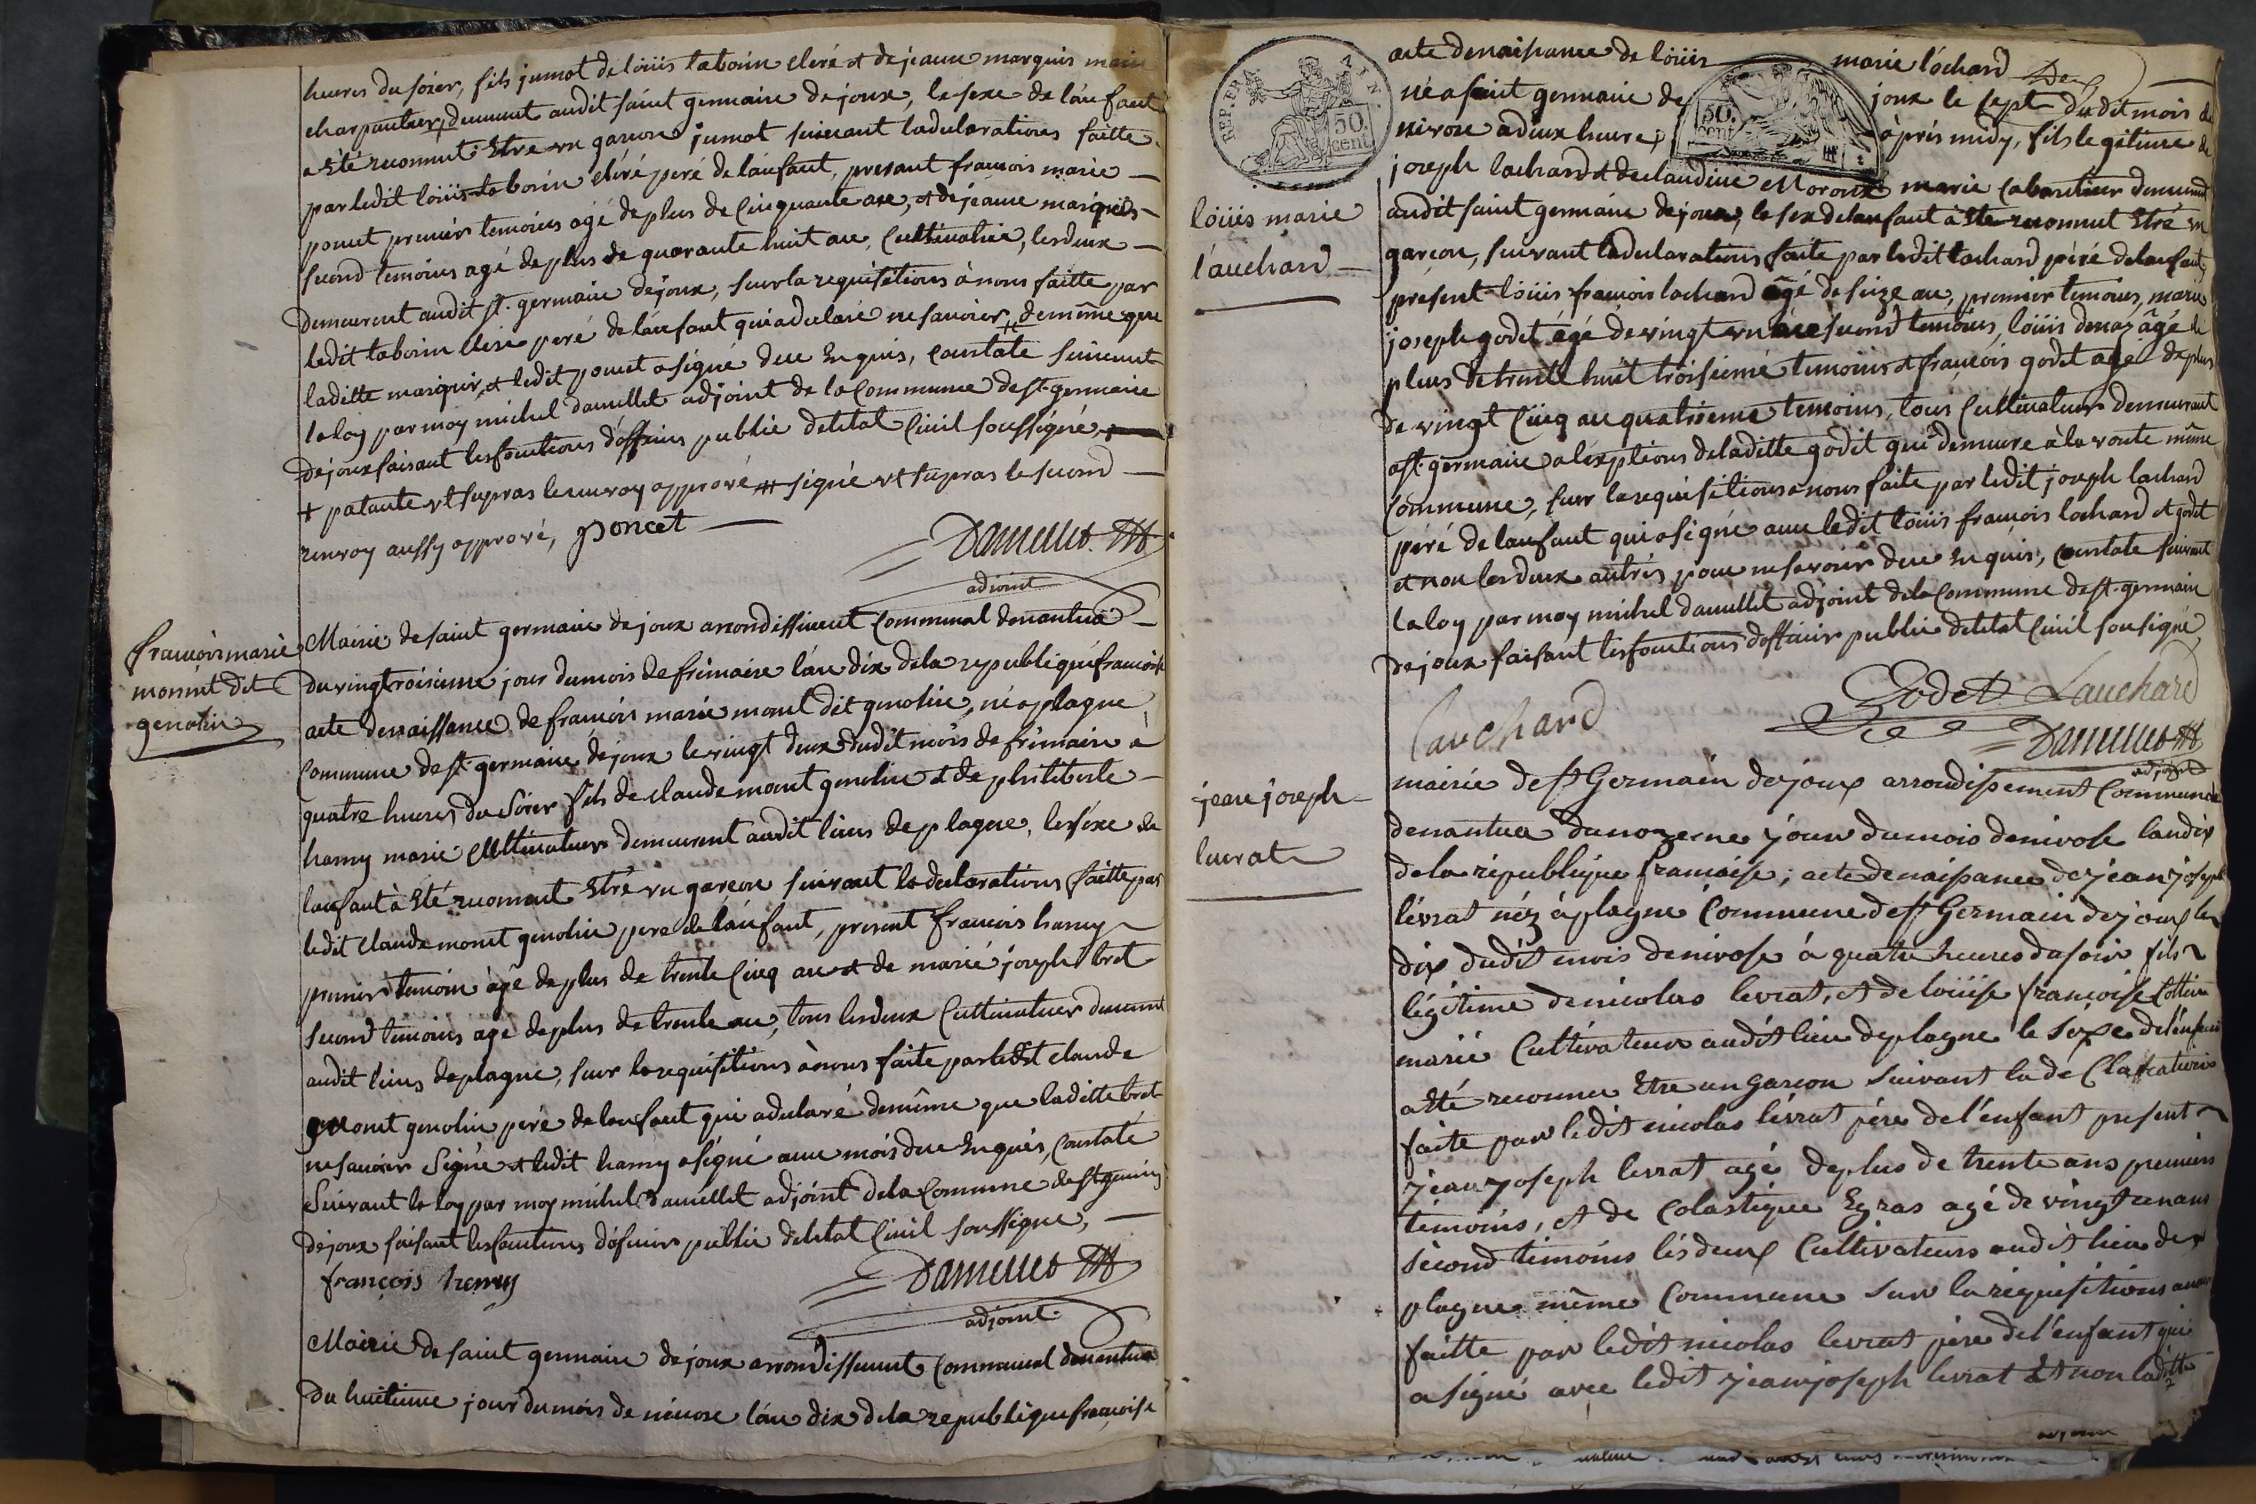 heures du soier, fils jumot de loüis taboin cleré et de jeanne marquis marié
charpantier, demurent audit saint germain de joux, le sexe de lanfant
a Eté reconnut Etre un garçon jumot suivant la declarations faitte
par ledit loüis taboin cléré peré de lanfant, presant francois marie
poncet premier temoins agé de plus de cinquante ans, et de jeanne marquis
second temoins agé de plus de quarante huit ans, Cultivatrie, les deux
demeurent audit st. germain de joux, sur la requisitions à nous faitte par
ledit taboin cleré peré de lanfant qui a declaré ne savoir, de même que
laditte marquis, et ledit poncet a signé de ce Enquis, Constaté suivant
la loy par moy michel damellet adjoint de la Commune de st. germain
de joux faisant les fonctions d'officier public de letat Civil soussigné
+ patante ut supras le renvoy apprové ## signé ut supras le second
renvoy aussy apprové, Poncet
Damellet
adjoint
francois marie
monnet dit
genolin
Mairie de saint germain de joux arrondissiment Communal de nantua
du vingt troisieme jour du mois de frimaire l'an dix de la republique francoise
acte de naissance de francois marie monet dit genolin, né a plagne
Commune de st. germain de joux le vingt deux dudit mois de frimaire à
quatre heures du soier fils de claude monet genolin et de philiberte
hamy marié Cultivateur demeurent audit lieux de plagne, le sexe de
lanfant à Eté reconnut Etre un garçon suivant la declarations faitte par
ledit claude monet genolin pere de lanfant, present francois hamy
premier temoin agé de plus de trente Cinq ans et de marie joseph bret
second temoins agé de plus de trente ans, tous les deux Cultivateur demurent
audit lieux de plagne, sur la requisitions à nous faite par ledit claude
monet genolin peré de lanfant qui a declaré de même que laditte bret
ne savoir Signé et ledit hamy a signé avec mois de ce Enquis, Constaté
Suivant la loy par moy michel damellet adjoint de la Commune de st germain
de joux faisant les fonctions d'oficier public de letat Civil soussigne,
françois hemy
Damellet
adjoint
Mairie de saint germain de joux arrondissement Communal de nantua
du huitieme jour du mois de nivose l'an dix de la republique francoise
REPER A.N.
50. cent.
50. cent
loüis marie
l'auchard
acte de naissance de loüis marie l'ochard
né a saint germain de joux le sept dudit mois de
nivose a deux heures après midy, fils legitime de
joseph lochard et de claudine Moroux marié Cabaretier demeurent
audit saint germain de joux, le sex de lanfant à Eté reconnut Etré un
garçon, suivant la declarations faite par ledit lochard péré de lanfant,
present loüis francois lochard agé de seize ans, premier temoins, marie
joseph godet agé de vingt un ans second temoins, loüis denaz âgé de
plus de trente huit troisieme temoins et francois godet agé de plus
de vingt Cinq ans quatrieme temoins, tous Cultivateur demeurant
a st. germain a l'exptions de laditte godet qui demeure à la voute même
Commune, sur la requisitions a nous faite par ledit joseph lochard
péré de lanfant qui a signé avec ledit loüis francois lochard et godet
et non les deux autrés pour ne savoir de ce Enquis, Constaté suivant
la loy par moy michel damellet adjoint de la Commune de st. germain
de joux faisant les fonctions d'officier public de letat Civil sousigné
Godet Lauchard
Lauchard
Damellet
adjoint
jean joseph
levrat
mairie de st Germain de joux arrondissement Communal
de nantua du onzeme jour du mois de nivose l'an dix
de la republique francaise; acte de naissance de jean joseph
levrat néz à plagne Commune de st Germain de joux le
dix dudit mois de nivose à quatre heures du soir fils
légitime de nicolas levrat, et de loüise francoise Cottier
marié Cultivateur audit lieu de plagne le sexe de l'enfant
a Eté reconnu Etre un garcon suivant la déClarations
faite par ledit nicolas lévrat père de l'enfant present
jean joseph levrat agé de plus de trente ans premier
témoins, et de Colastique Egras agé de vingt un ans
second témoins les deux Cultivateurs audit lieu de
plagne même Commune sur la requisitions a nous
faitte par ledit nicolas levrat père de l'enfant qui
a signé avec ledit jean joseph levrat Et non laditte